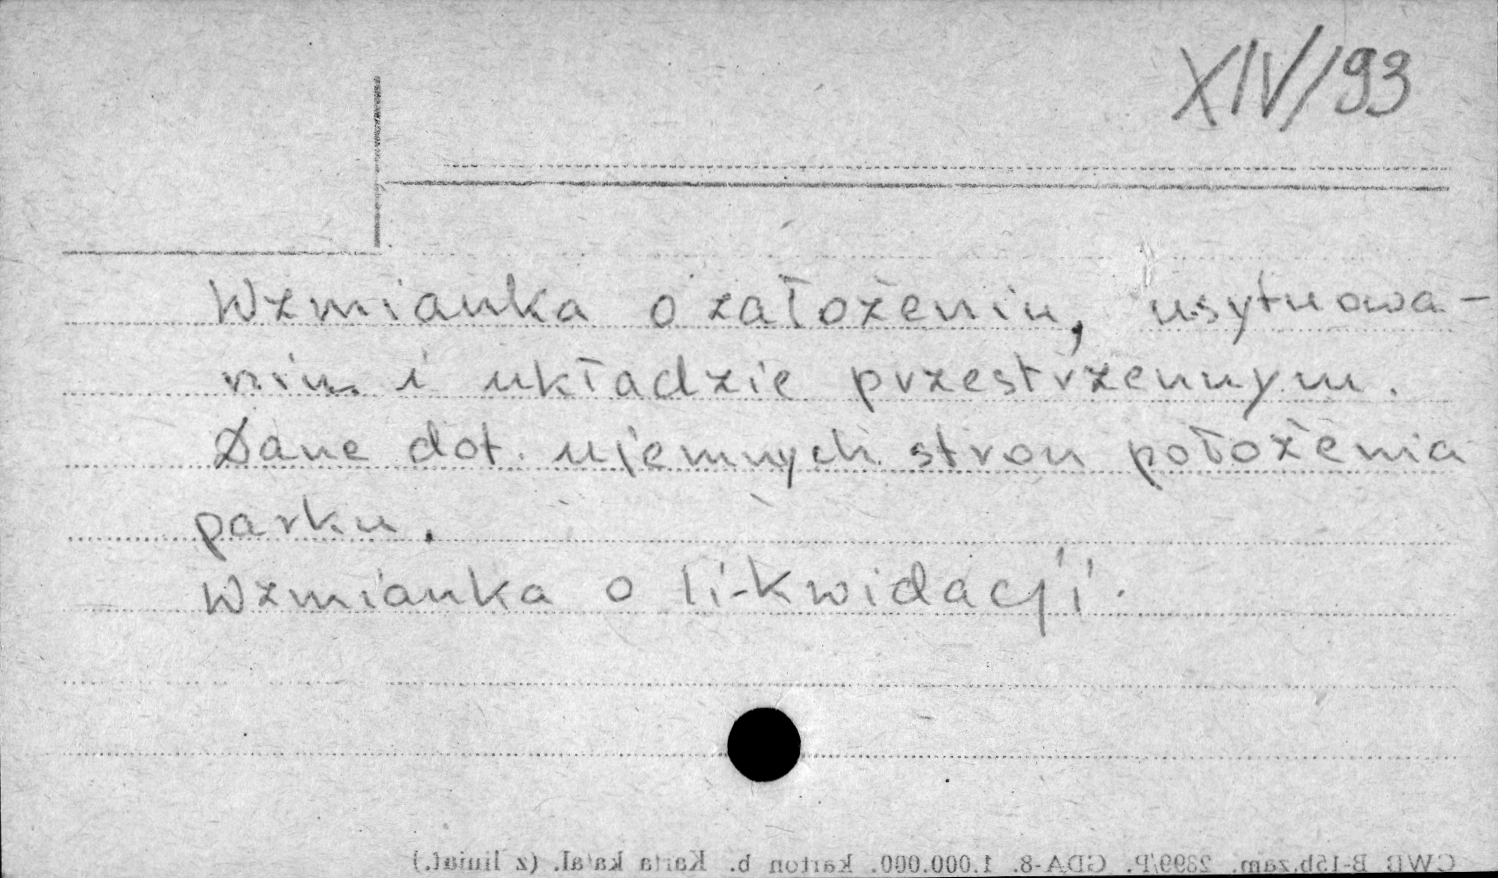 XIV/93
Wzmianka o założeniu, usytuowa-
niu i układzie przestrzennym.
Dane dot. ujemnych stron położenia
parku.
Wzmianka o likwidacji.
CWD B-15b.zam. 2899/P. GDA-8. 1.000.000. karton b. Karta katal. (z liniat.)